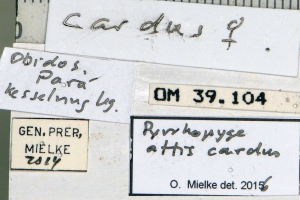 Cardus ♀.
Obidos
Pará
Kesselring lg.
OM 39.104
GEN. PREP.
MIELKE
2014
Pyrrhopyge
attis cardus
O. Mielke det. 2015